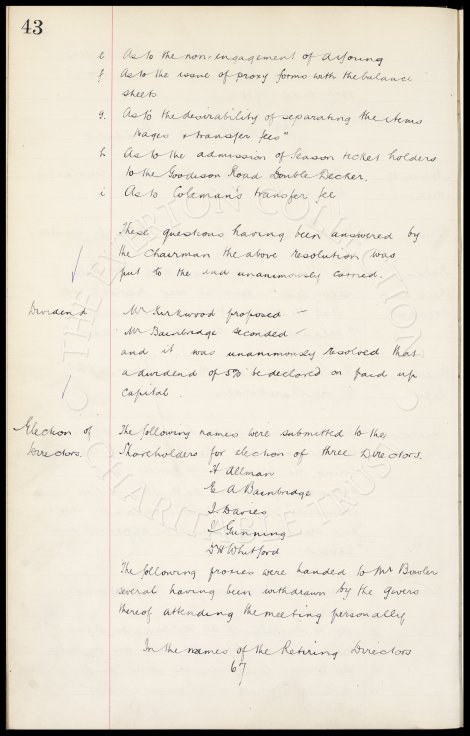 43
e As to the non-engagement of A Young
f As to the issue of proxy forms with the balance
sheets
g. As to the desirability of separating the items
"Wages & transfer fees"
h As to the admission of Season ticket holders
to the Goodison Road Double Decker.
i As to Coleman's transfer fee
These questions having been answered by
the Chairman the above resolution was
put to the and unanimously carried.
Dividend Mr Kirkwood proposed —
Mr Bainbridge seconded —
and it was unanimously resolved that
a dividend of 5% be declared on paid up
capital.
Election of The following names were submitted to the
Directors. Shareholders for election of three Directors.
H Allman
E A Bainbridge
J Davies
Gunning
Dr Whitford
The following proxies were handed to Mr Bowler
several having been withdrawn by the givers
thereof attending the meeting personally
In the names of the Retiring Directors
67
© THE EVERTON COLLECTION
CHARITABLE TRUST